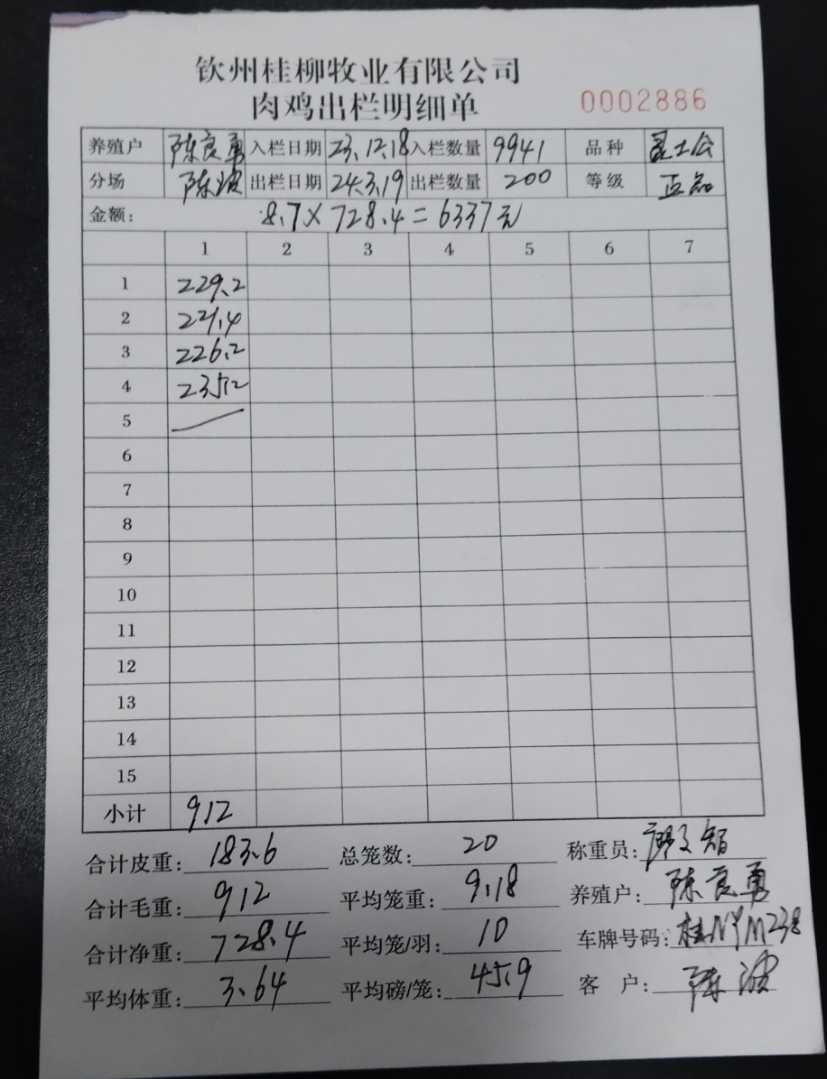 钦州桂柳牧业有限公司
肉鸡出栏明细单 0002886
养殖户 陈良勇 入栏日期 23.12.18 入栏数量 9941 品种
分场 陈波 出栏日期 24.3.19 出栏数量 200 等级 正品
金额: 8.7×728.4=6337元
1 2 3 4 5 6 7
1 229.2
2 221.4
3 226.2
4 235.2
5
6
7
8
9
10
11
12
13
14
15
小计 912
合计皮重: 183.6 总笼数: 20 称重员:
合计毛重: 912 平均笼重: 9.18 养殖户: 陈良勇
合计净重: 728.4 平均笼/羽: 10 车牌号码:
平均体重: 3.64 平均磅/笼: 45.9 客 户: 陈波